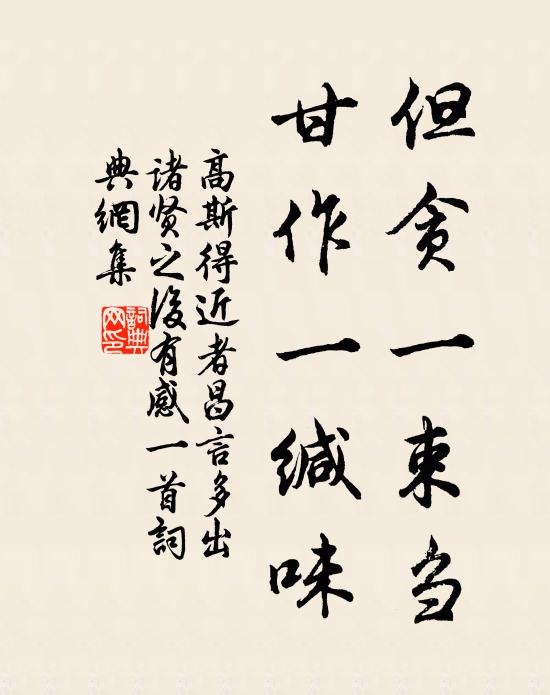 但贪一束刍
甘作一缄味
高斯得近者昌言多出
诸贤之后有感一首词
典網集
詞典
网印